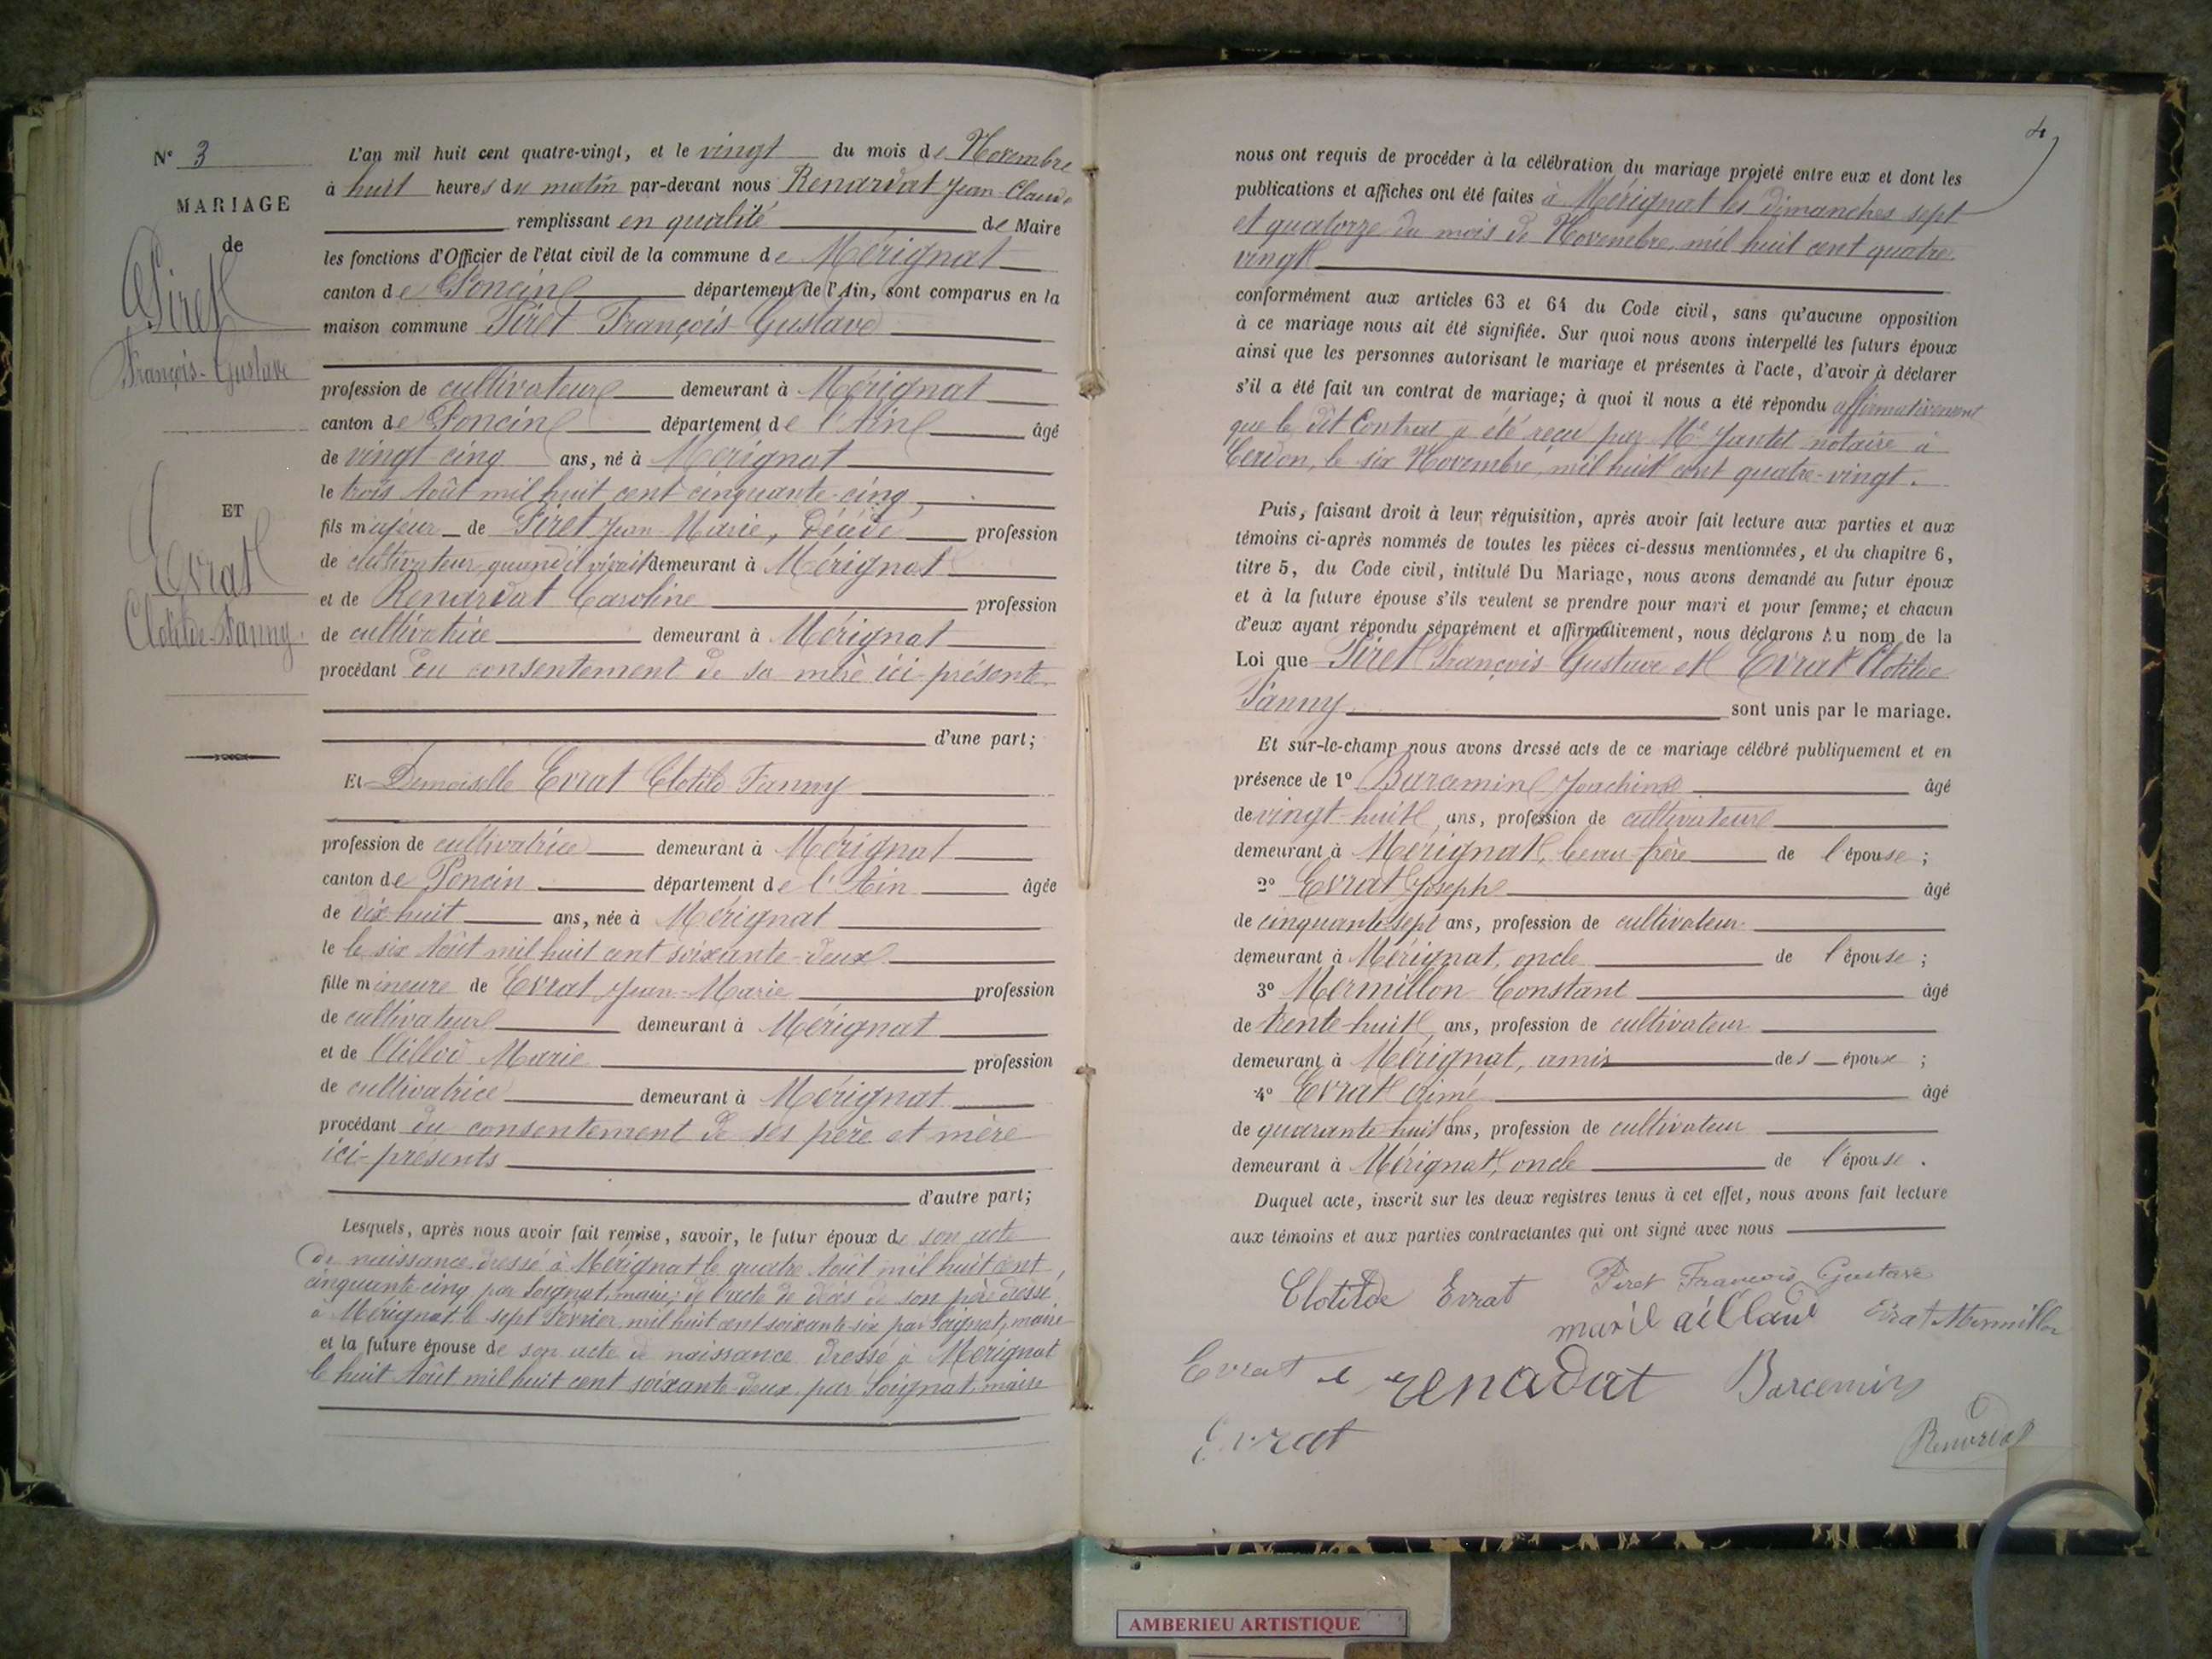 N° 3
MARIAGE
de
Piret
François-Gustave
ET
Evrat
Clotilde-Fanny.
L'an mil huit cent quatre-vingt, et le vingt du mois de Novembre
à huit heures du matin par-devant nous Renardat Jean-Claude
remplissant en qualité de Maire
les fonctions d'Officier de l'état civil de la commune de Mérignat
canton de Poncin département de l'Ain, sont comparus en la
maison commune Piret François-Gustave
profession de cultivateur demeurant à Mérignat
canton de Poncin département de l'Ain âgé
de vingt cinq ans, né à Mérignat
le trois Août mil huit cent cinquante-cinq,
fils majeur de Piret Jean-Marie, décédé profession
de cultivateur quand il vivait demeurant à Mérignat
et de Renardat Caroline profession
de cultivatrice demeurant à Mérignat
procédant du consentement de sa mère ici-présente
d'une part;
Et Demoiselle Evrat Clotilde Fanny
profession de cultivatrice demeurant à Mérignat
canton de Poncin département de l'Ain âgée
de dix-huit ans, née à Mérignat
le le six Août mil huit cent soixante-deux
fille mineure de Evrat Jean-Marie profession
de cultivateur demeurant à Mérignat
et de Marie profession
de cultivatrice demeurant à Mérignat
procédant du consentement de ses père et mère
ici-présents
d'autre part;
Lesquels, après nous avoir fait remise, savoir, le futur époux de son acte
de naissance dressé à Mérignat le quatre Août mil huit cent
cinquante-cinq par Soignat, maire; de l'acte de décès de son père dressé
à Mérignat le sept Février mil huit cent soixante-six par Soignat, maire
et la future épouse de son acte de naissance dressé à Mérignat
le huit Août mil huit cent soixante-deux par Soignat, maire
4
nous ont requis de procéder à la célébration du mariage projeté entre eux et dont les
publications et affiches ont été faites à Mérignat les dimanches sept
et quatorze du mois de Novembre mil huit cent quatre-
vingt
conformément aux articles 63 et 64 du Code civil, sans qu'aucune opposition
à ce mariage nous ait été signifiée. Sur quoi nous avons interpellé les futurs époux
ainsi que les personnes autorisant le mariage et présentes à l'acte, d'avoir à déclarer
s'il a été fait un contrat de mariage; à quoi il nous a été répondu affirmativement
que le dit Contrat a été reçu par Me Jantet notaire à
Cerdon, le six Novembre, mil huit cent quatre-vingt.
Puis, faisant droit à leur réquisition, après avoir fait lecture aux parties et aux
témoins ci-après nommés de toutes les pièces ci-dessus mentionnées, et du chapitre 6,
titre 5, du Code civil, intitulé Du Mariage, nous avons demandé au futur époux
et à la future épouse s'ils veulent se prendre pour mari et pour femme; et chacun
d'eux ayant répondu séparément et affirmativement, nous déclarons Au nom de la
Loi que Piret François-Gustave et Evrat Clotilde
Fanny sont unis par le mariage.
Et sur-le-champ nous avons dressé acte de ce mariage célébré publiquement et en
présence de 1° Barcemin Joachim âgé
de vingt-huit ans, profession de cultivateur
demeurant à Mérignat, beau-frère de l'épouse ;
2° Evrat Joseph âgé
de cinquante-sept ans, profession de cultivateur
demeurant à Mérignat, oncle de l'épouse ;
3° Mermillon Constant âgé
de trente-huit ans, profession de cultivateur
demeurant à Mérignat, amis des époux ;
4° Evrat Aimé âgé
de quarante-huit ans, profession de cultivateur
demeurant à Mérignat, oncle de l'épouse .
Duquel acte, inscrit sur les deux registres tenus à cet effet, nous avons fait lecture
aux témoins et aux parties contractantes qui ont signé avec nous
Clotilde Evrat Piret François Gustave
Evrat Mermillon
Evrat renadat Barcemin
Evrat Renardat
AMBERIEU ARTISTIQUE